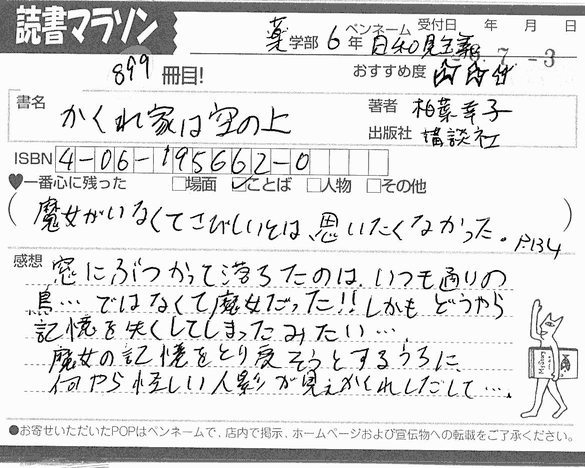 読書マラソン
899冊目!
薬学部6年 ペンネーム 日和見主義
受付日 年 月 日
7-3
おすすめ度
書名 かくれ家は空の上
著者 柏葉幸子
出版社 講談社
ISBN 4-06-195662-0
♥一番心に残った □場面 ☑ことば □人物 □その他
(魔女がいなくてさびしいとは思いたくなかった。P134)
感想 窓にぶつかって落ちたのは、いつも通りの
鳥…ではなくて魔女だった!!しかもどうやら
記憶を失くしてしまったみたい…。
魔女の記憶をとり戻そうとするうちに、
何やら怪しい人影が見えかくれしだして…。
●お寄せいただいたPOPはペンネームで、店内で掲示、ホームページおよび宣伝物への転載をご了承ください。